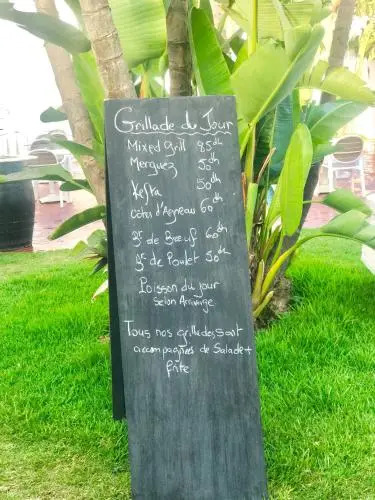 Grillade du Jour
Mixed Grill 85 dh
Merguez 50 dh
Kefta 50 dh
Côtes d'Agneau 60 dh
Bc de Bœuf 60 dh
Bc de Poulet 50 dh
Poisson du jour
Selon Arrivage
Tous nos grillades sont
accompagnées de Salade +
frite